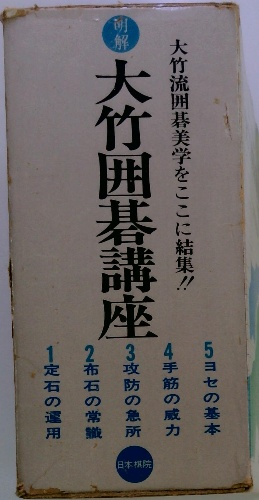 大竹流囲碁美学をここに結集!!
明解
大竹囲碁講座
1 定石の運用
2 布石の常識
3 攻防の急所
4 手筋の威力
5 ヨセの基本
日本棋院